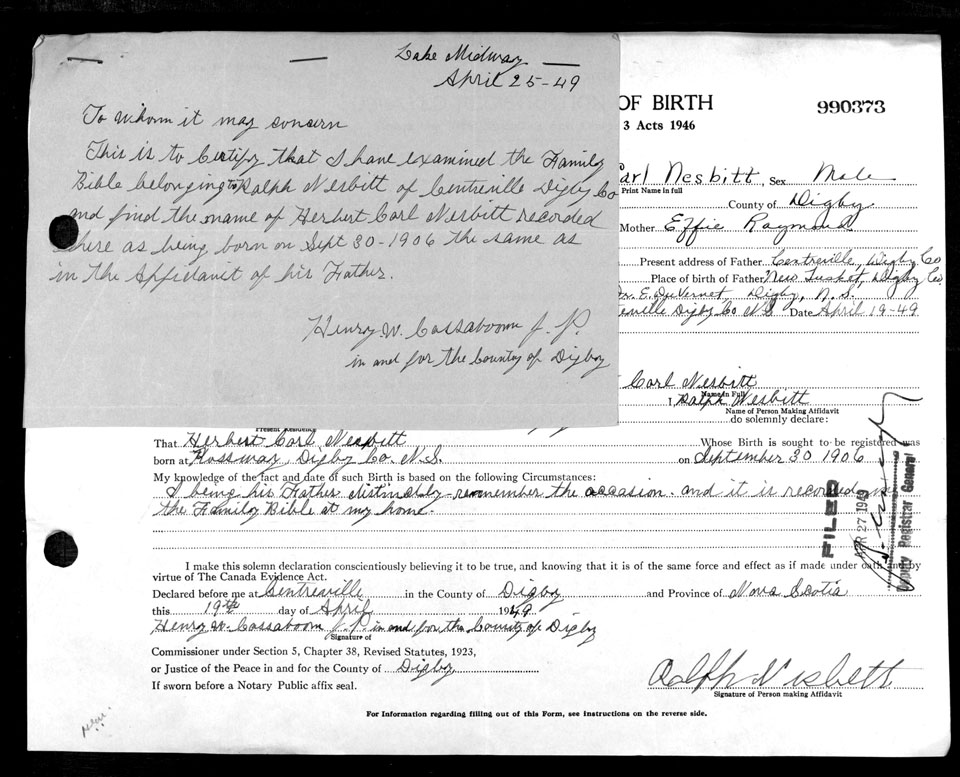 Lake Midway
April 25-49
To whom it may concern
This is to Certify that I have examined the Family
Bible belonging to Ralph Nesbitt of Centreville Digby Co
and find the name of Herbert Carl Nesbitt recorded
there as being born on Sept 30-1906 the same as
in the Affidavit of his Father.
Henry W. Cossaboom J. P.
in and for the County of Digby
OF BIRTH
990373
3 Acts 1946
Carl Nesbitt, Sex Male
Print Name in full
County of Digby
Mother Effie Raymond
Present address of Father Centreville, Digby Co
Place of birth of Father New Tusket, Digby Co.
Dr. E. DuVernet Digby, N. S.
Digby Co N S Date April 19-49
Carl Nesbitt
Name in Full
I, Ralph Nesbitt
Name of Person Making Affidavit
do solemnly declare:
Present Residence
That Herbert Carl Nesbitt Whose Birth is sought to be registered was
born at Rossway, Digby Co. N.S. on September 30 1906
My knowledge of the fact and date of such Birth is based on the following Circumstances:
I being his Father distinctly remember the occasion and it is recorded
the Family Bible at my home.
FILED
APR 27 1949
Deputy Registrar General
I make this solemn declaration conscientiously believing it to be true, and knowing that it is of the same force and effect as if made under oath and by
virtue of The Canada Evidence Act.
Declared before me at Centreville in the County of Digby and Province of Nova Scotia
this 19th day of April 1949
Henry W. Cossaboom J. P. in and for the County of Digby
Signature of
Commissioner under Section 5, Chapter 38, Revised Statutes, 1923,
or Justice of the Peace in and for the County of Digby
If sworn before a Notary Public affix seal.
Ralph Nisbett
Signature of Person making Affidavit
For Information regarding filling out of this Form, see instructions on the reverse side.